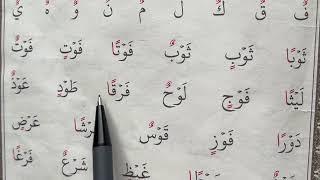 فٌ قٌ كٌ لٌ مٌ نٌ وٌ هٌ يٌ
ثَوْبًا ثَوْبٍ ثَوْبٌ فَوْتًا فَوْتٍ فَوْتٌ
لَيْثًا فَوْجٍ لَوْحٌ فَرْقًا طَوْدٍ عَوْدٌ
دَوْرًا فَوْزٍ قَوْسٌ عَرْضٍ
شَرْعٌ فَرْغًا